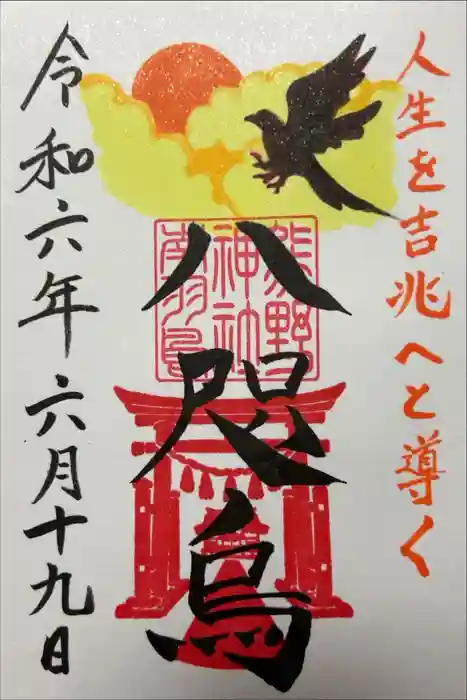 人生を吉兆へと導く
八咫烏
熊野
神社
南羽鳥
令和六年六月十九日